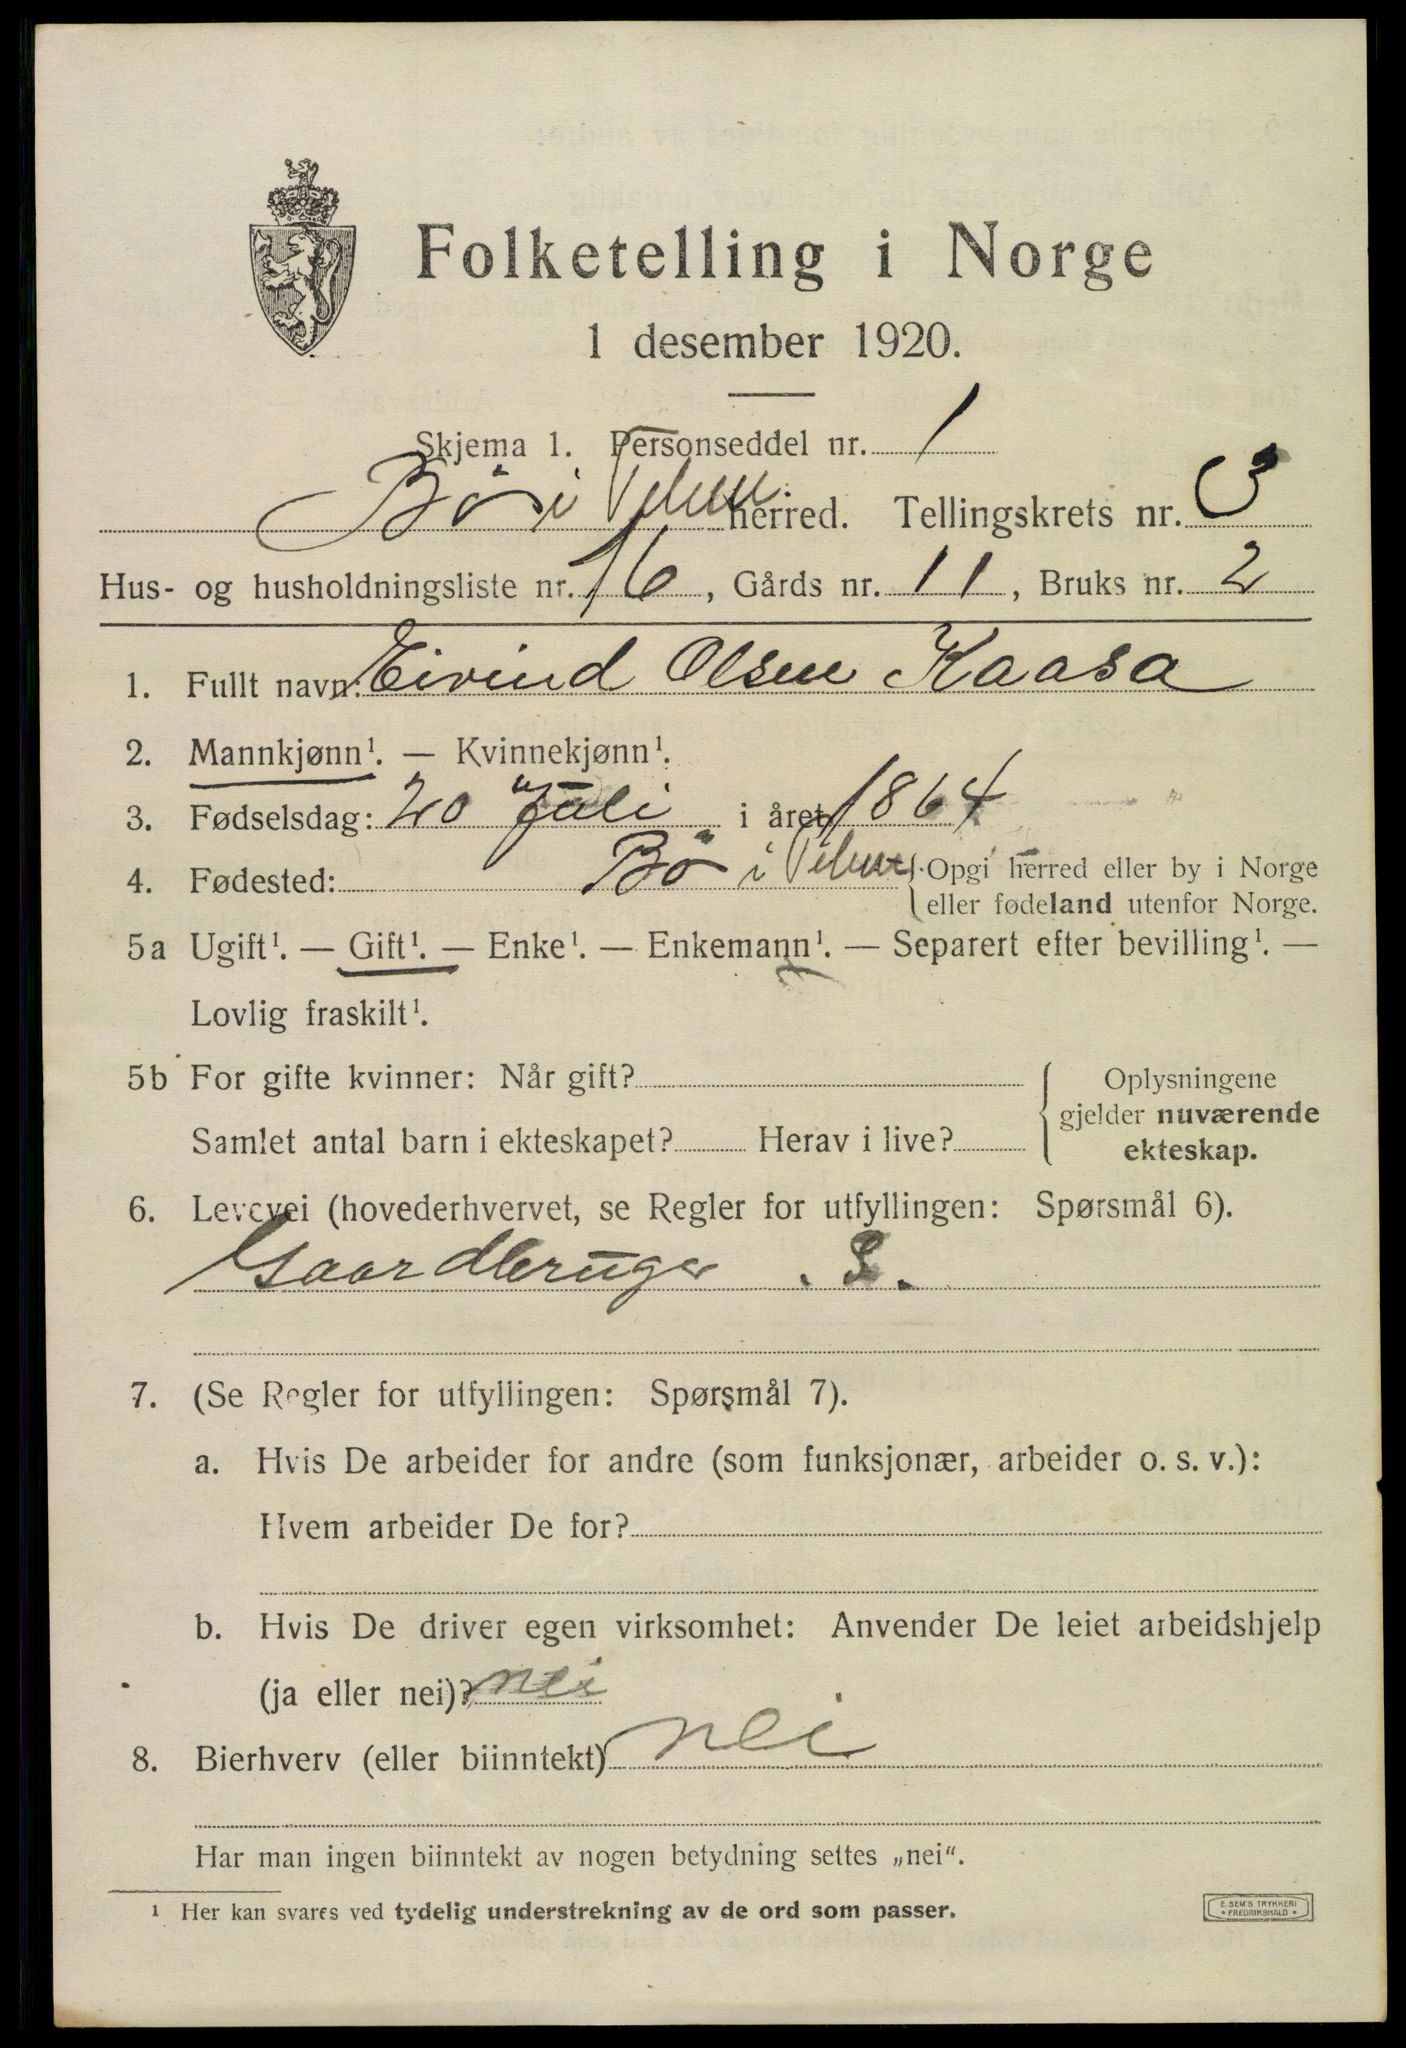 Folketelling i Norge
1 desember 1920.
Skjema 1. Personseddel nr. 1
Bø i Telem herred. Tellingskrets nr. 3
Hus- og husholdningsliste nr. 16, Gårds nr. 11, Bruks nr. 2
1. Fullt navn: Eivind Olsen Kaasa
2. Mannkjønn¹. — Kvinnekjønn¹.
3. Fødselsdag: 20 Juli i året 1864
4. Fødested: Bø i Telem {Opgi herred eller by i Norge
eller fødeland utenfor Norge.
5a Ugift¹. — Gift¹. — Enke¹. — Enkemann¹. — Separert efter bevilling¹. —
Lovlig fraskilt¹.
5b For gifte kvinner: Når gift? Oplysningene
gjelder nuværende
Samlet antal barn i ekteskapet? Herav i live? ekteskap.
6. Levevei (hovederhvervet, se Regler for utfyllingen: Spørsmål 6).
Gaardbruger . S.
7. (Se Regler for utfyllingen: Spørsmål 7).
a. Hvis De arbeider for andre (som funksjonær, arbeider o. s. v.):
Hvem arbeider De for?
b. Hvis De driver egen virksomhet: Anvender De leiet arbeidshjelp
(ja eller nei)? nei
8. Bierhverv (eller biinntekt) nei
Har man ingen biinntekt av nogen betydning settes „nei“.
¹ Her kan svares ved tydelig understrekning av de ord som passer.
E. SEM'S TRYKKERI
FREDRIKSHALD